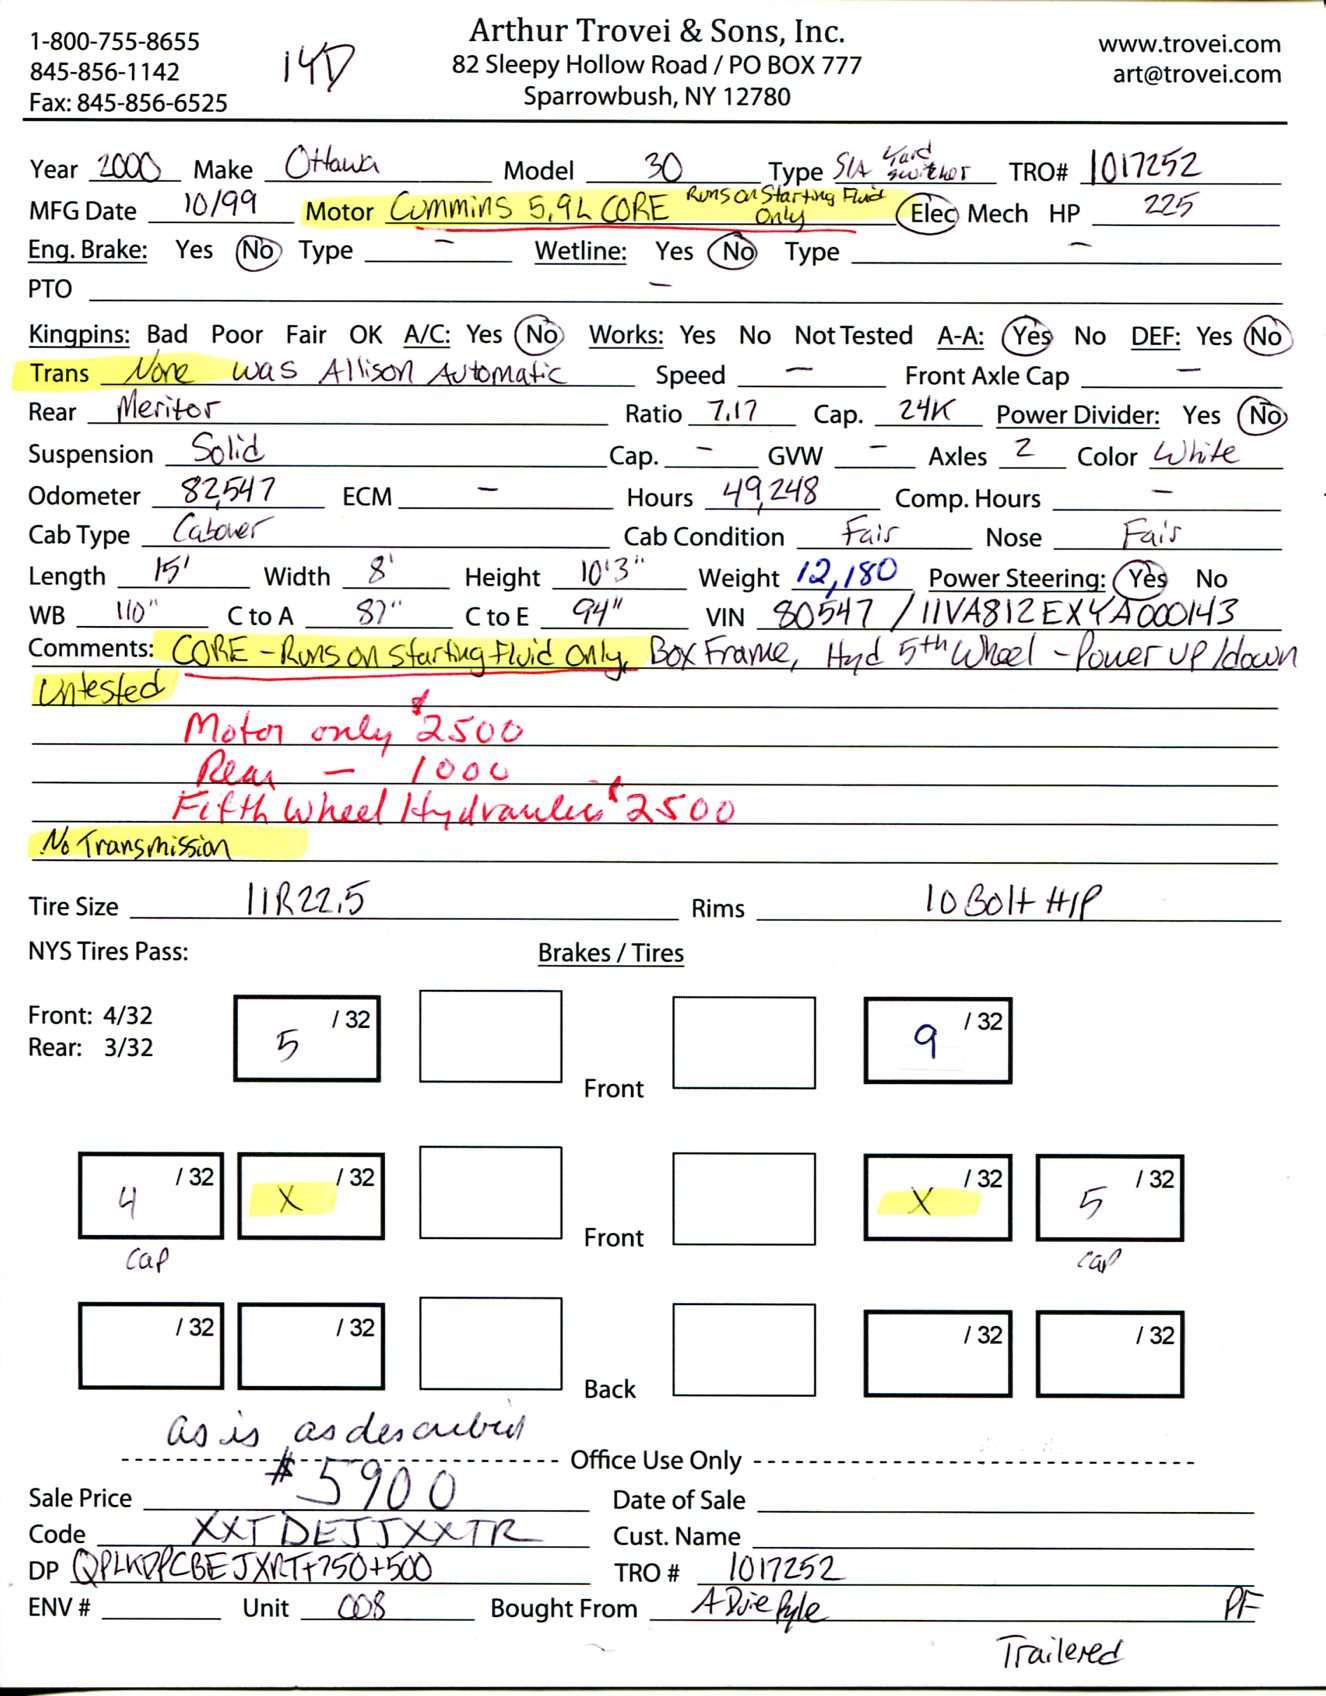 1-800-755-8655
845-856-1142
Fax: 845-856-6525
14D
Arthur Trovei & Sons, Inc.
82 Sleepy Hollow Road / PO BOX 777
Sparrowbush, NY 12780
www.trovei.com
art@trovei.com
Year 2000 Make Ottawa Model 30 Type S/A Yard Switcher TRO# 1017252
MFG Date 10/99 Motor Cummins 5.9L CORE Runs on Starting Fluid Only Elec Mech HP 225
Eng. Brake: Yes No Type – Wetline: Yes No Type –
PTO –
Kingpins: Bad Poor Fair OK A/C: Yes No Works: Yes No Not Tested A-A: Yes No DEF: Yes No
Trans None was Allison Automatic Speed – Front Axle Cap –
Rear Meritor Ratio 7.17 Cap. 24K Power Divider: Yes No
Suspension Solid Cap. – GVW – Axles 2 Color White
Odometer 82,547 ECM – Hours 49,248 Comp. Hours –
Cab Type Cabover Cab Condition Fair Nose Fair
Length 15' Width 8' Height 10'3" Weight 12,180 Power Steering: Yes No
WB 110" C to A 87" C to E 94" VIN 80547 / 11VA812EXYA000143
Comments: CORE - Runs on Starting Fluid Only, Box Frame, Hyd 5th Wheel - Power up/down
Untested
Motor only $2500
Rear – 1000
Fifth Wheel Hydraulics $2500
No Transmission
Tire Size 11R22.5 Rims 10 Bolt H/P
NYS Tires Pass: Brakes / Tires
Front: 4/32
Rear: 3/32
5 /32 9 /32
Front
4 /32 X /32 X /32 5 /32
Front
Cap Cap
/32 /32 /32 /32
Back
as is as described
Office Use Only
Sale Price $5900 Date of Sale
Code XXTDEJJXXTR Cust. Name
DP QPLKDPCBEJXRT+750+500 TRO # 1017252
ENV # Unit 008 Bought From A Duie Pyle PF
Trailered